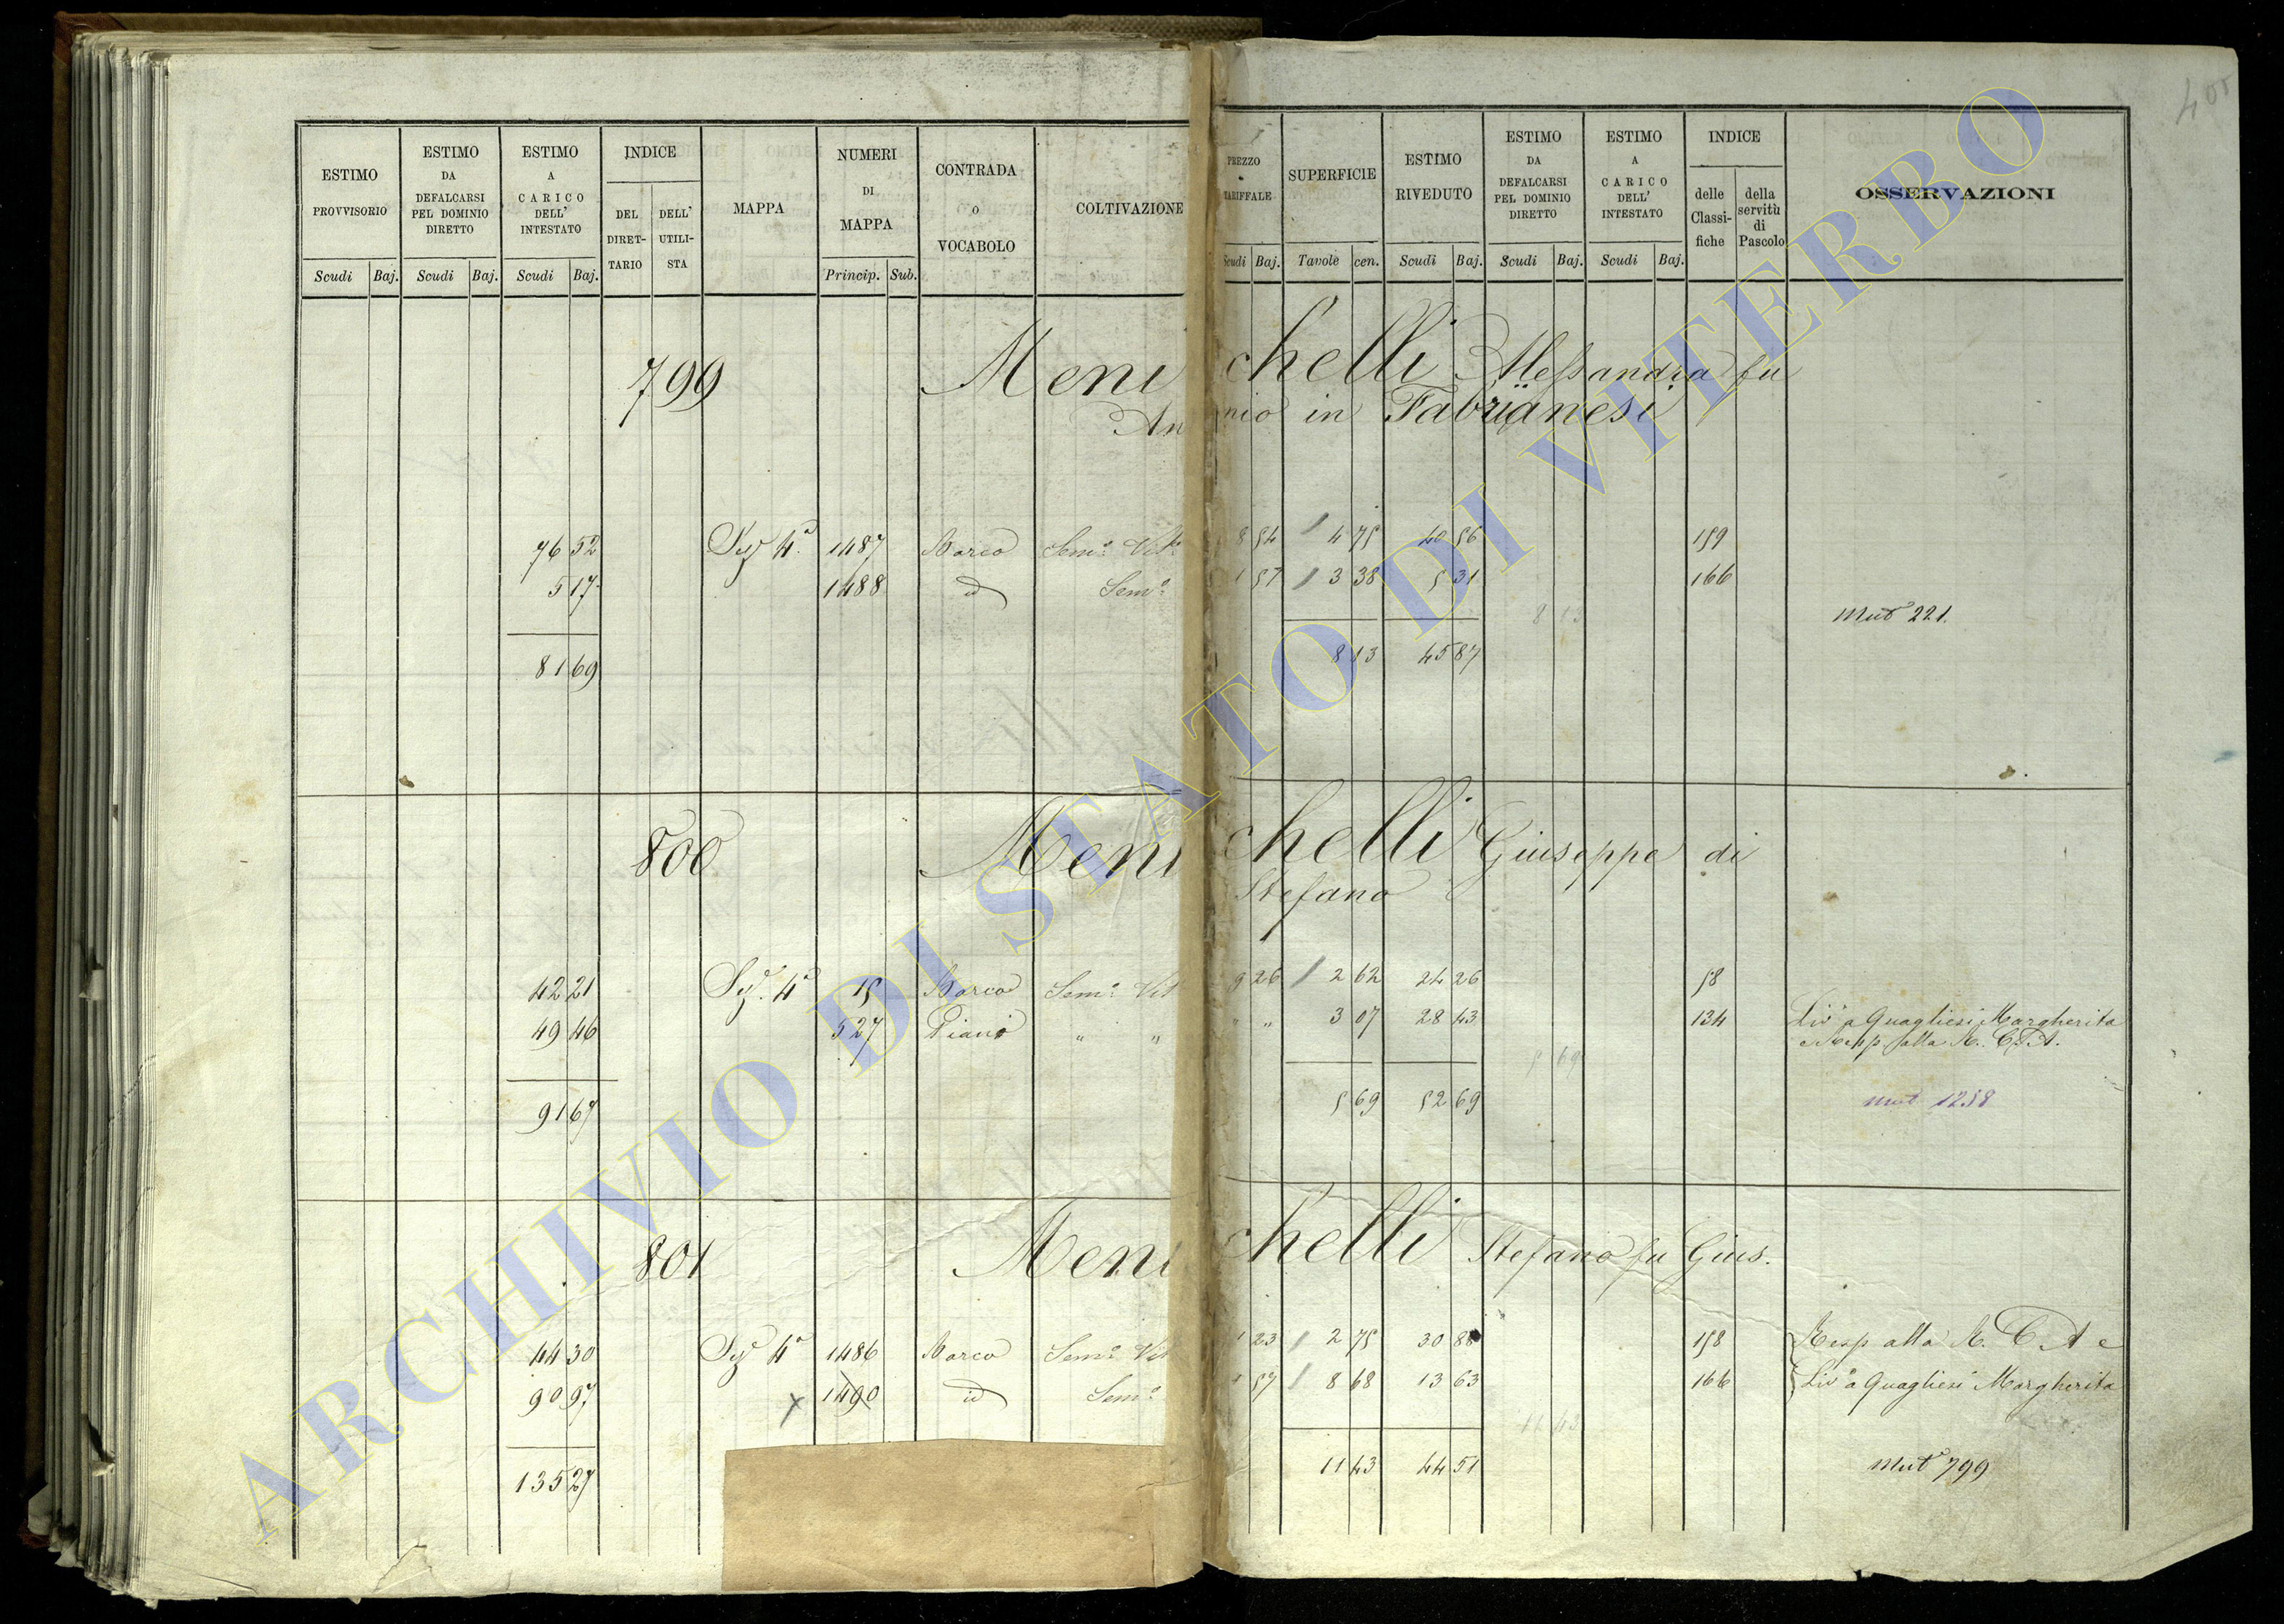 405
ESTIMO PROVVISORIO Scudi Baj.
ESTIMO DA DEFALCARSI PEL DOMINIO DIRETTO Scudi Baj.
ESTIMO A CARICO DELL' INTESTATO Scudi Baj.
INDICE DEL DIRETTARIO DELL' UTILISTA
MAPPA
NUMERI DI MAPPA Princip. Sub.
CONTRADA O VOCABOLO
COLTIVAZIONE
PREZZO TARIFFALE Scudi Baj.
SUPERFICIE Tavole cen.
ESTIMO RIVEDUTO Scudi Baj.
ESTIMO DA DEFALCARSI PEL DOMINIO DIRETTO Scudi Baj.
ESTIMO A CARICO DELL' INTESTATO Scudi Baj.
INDICE delle Classifiche della servitù di Pascolo
OSSERVAZIONI
799 Menichelli Alessandra fu
An nio in Fabrianesi
76 52 Sez 4ª 1487 Barco Semo Vito 8 54 4 75 40 56 159
5 17 1488 id Semo 1 57 3 38 5 31 166
8 13 Mut 221.
81 69 8 13 45 87
800 Menichelli Giuseppe di
Stefano
42 21 Sez. 4ª 15 Barco Semo Vit 9 26 2 62 24 26 58
49 46 527 Piano " " " " 3 07 28 43 134 Livo a Quagliesi Margherita
e Resp. alla R. C. A.
5 69
91 67 5 69 52 69 mut 1258
801 Menichelli Stefano fu Gius.
44 30 Sez 4ª 1486 Barco Semo Vit 1 23 2 75 30 88 158 Resp alla R. C. A e
90 97 x 1490 id Semo 1 57 8 68 13 63 166 Livo a Quagliesi Margherita
11 43
135 27 11 43 44 51 Mut 799
ARCHIVIO DI STATO DI VITERBO